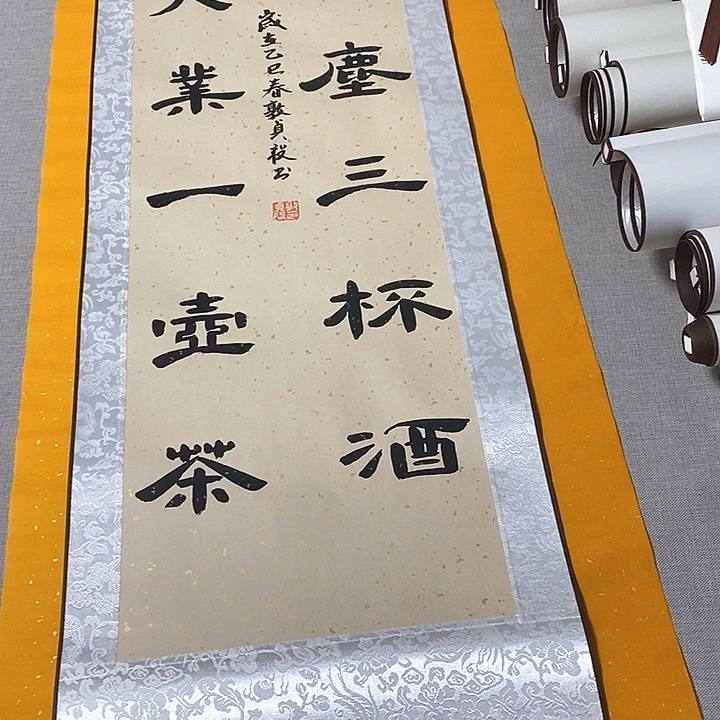 塵三杯酒
歲在乙巳春敦貞毅书
大業一壺茶